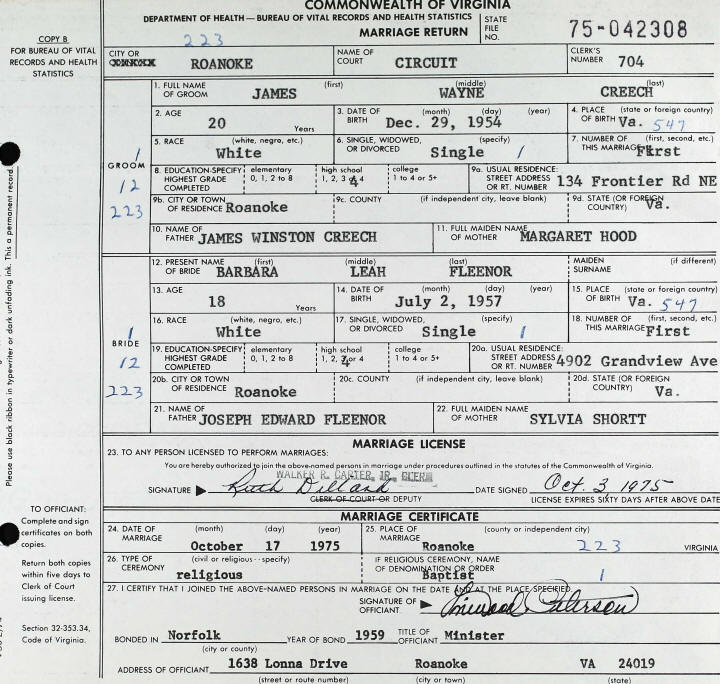 COMMONWEALTH OF VIRGINIA
DEPARTMENT OF HEALTH — BUREAU OF VITAL RECORDS AND HEALTH STATISTICS
MARRIAGE RETURN
STATE FILE NO. 75-042308
COPY B
FOR BUREAU OF VITAL RECORDS AND HEALTH STATISTICS
223
CITY OR ROANOKE NAME OF COURT CIRCUIT CLERK'S NUMBER 704
GROOM
1
12
223
1. FULL NAME OF GROOM (first) JAMES (middle) WAYNE (last) CREECH
2. AGE 20 Years 3. DATE OF BIRTH (month) (day) (year) Dec. 29, 1954 4. PLACE OF BIRTH (state or foreign country) Va. 547
5. RACE (white, negro, etc.) White 6. SINGLE, WIDOWED, OR DIVORCED (specify) Single 1 7. NUMBER OF THIS MARRIAGE (first, second, etc.) First
8. EDUCATION-SPECIFY HIGHEST GRADE COMPLETED elementary 0, 1, 2 to 8 high school 1, 2, 3 4 college 1 to 4 or 5+ 9a. USUAL RESIDENCE: STREET ADDRESS OR RT. NUMBER 134 Frontier Rd NE
9b. CITY OR TOWN OF RESIDENCE Roanoke 9c. COUNTY (if independent city, leave blank) 9d. STATE (OR FOREIGN COUNTRY) Va.
10. NAME OF FATHER JAMES WINSTON CREECH 11. FULL MAIDEN NAME OF MOTHER MARGARET HOOD
BRIDE
1
12
223
12. PRESENT NAME OF BRIDE (first) BARBARA (middle) LEAH (last) FLEENOR MAIDEN SURNAME (if different)
13. AGE 18 Years 14. DATE OF BIRTH (month) (day) (year) July 2, 1957 15. PLACE OF BIRTH (state or foreign country) Va. 547
16. RACE (white, negro, etc.) White 17. SINGLE, WIDOWED, OR DIVORCED (specify) Single 1 18. NUMBER OF THIS MARRIAGE (first, second, etc.) First
19. EDUCATION-SPECIFY HIGHEST GRADE COMPLETED elementary 0, 1, 2 to 8 high school 1, 2, 3 or 4 college 1 to 4 or 5+ 20a. USUAL RESIDENCE: STREET ADDRESS OR RT. NUMBER 4902 Grandview Ave
20b. CITY OR TOWN OF RESIDENCE Roanoke 20c. COUNTY (if independent city, leave blank) 20d. STATE (OR FOREIGN COUNTRY) Va.
21. NAME OF FATHER JOSEPH EDWARD FLEENOR 22. FULL MAIDEN NAME OF MOTHER SYLVIA SHORTT
MARRIAGE LICENSE
23. TO ANY PERSON LICENSED TO PERFORM MARRIAGES:
You are hereby authorized to join the above-named persons in marriage under procedures outlined in the statutes of the Commonwealth of Virginia.
WALKER R. CARTER, JR. CLERK
SIGNATURE Ruth Dillard DATE SIGNED Oct 3 1975
CLERK OF COURT OR DEPUTY LICENSE EXPIRES SIXTY DAYS AFTER ABOVE DATE
MARRIAGE CERTIFICATE
24. DATE OF MARRIAGE (month) (day) (year) October 17 1975 25. PLACE OF MARRIAGE (county or independent city) Roanoke 223 VIRGINIA
26. TYPE OF CEREMONY (civil or religious--specify) religious IF RELIGIOUS CEREMONY, NAME OF DENOMINATION OR ORDER Baptist 1
27. I CERTIFY THAT I JOINED THE ABOVE-NAMED PERSONS IN MARRIAGE ON THE DATE AND AT THE PLACE SPECIFIED.
SIGNATURE OF OFFICIANT
BONDED IN Norfolk YEAR OF BOND 1959 TITLE OF OFFICIANT Minister
(city or county)
ADDRESS OF OFFICIANT 1638 Lonna Drive Roanoke VA 24019
(street or route number) (city or town) (state)
Please use black ribbon in typewriter or dark unfading ink. This a permanent record.
TO OFFICIANT:
Complete and sign certificates on both copies.
Return both copies within five days to Clerk of Court issuing license.
Section 32-353.34, Code of Virginia.